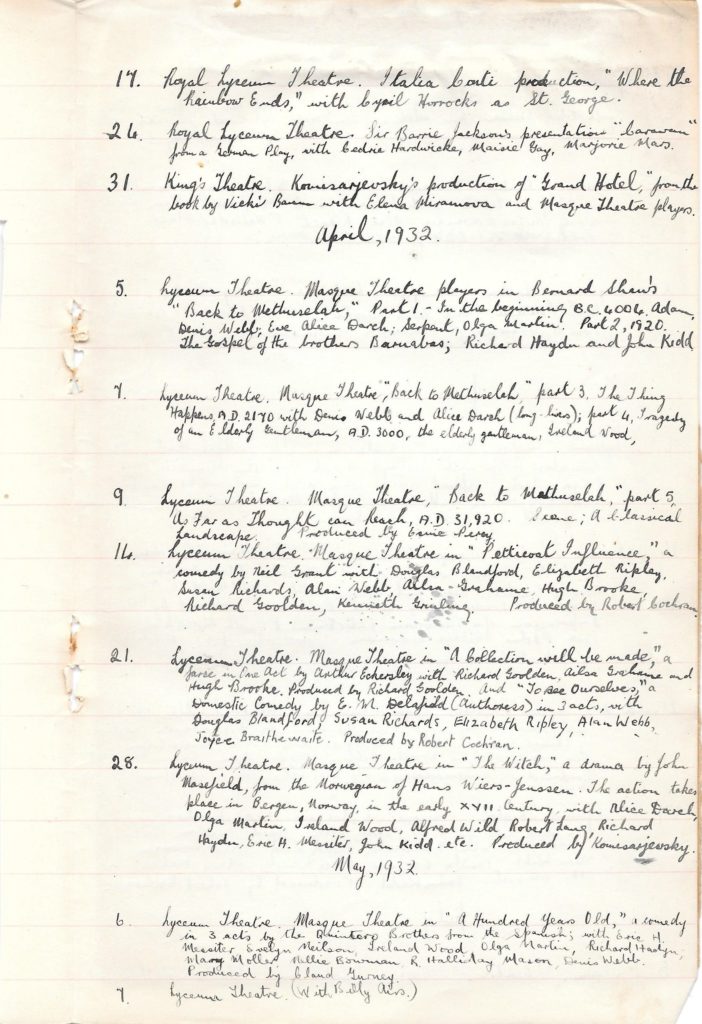 17. Royal Lyceum Theatre. Italia Conti production, "Where the
Rainbow Ends," with Cyril Horrocks as St. George.
24. Royal Lyceum Theatre. Sir Barrie Jackson's presentation "Caravan"
from a German Play, with Cedric Hardwicke, Maisie Gay, Marjorie Mars.
31. King's Theatre. Komisarjevsky's production of "Grand Hotel," from the
book by Vicki Baum with Elena Miramova and Masque Theatre players.
April, 1932.
5. Lyceum Theatre. Masque Theatre players in Bernard Shaw's
"Back to Methuselah," Part 1. - In the beginning B.C. 4004. Adam,
Denis Webb, Eve Alice Darch; Serpent, Olga Martin. Part 2, 1920.
The Gospel of the brothers Barnabas; Richard Haydn and John Kidd
7. Lyceum Theatre. Masque Theatre, "Back to Methuselah," part 3, The Thing
Happens, A.D. 2170 with Denis Webb and Alice Darch (long-livers); part 4, Tragedy
of an Elderly Gentleman, A.D. 3000, the elderly gentleman, Ireland Wood,
9. Lyceum Theatre. Masque Theatre, "Back to Methuselah," part 5,
As Far as Thought can Reach, A.D. 31,920. Scene; A Classical
Landscape. Produced by Esme Percy.
14. Lyceum Theatre. Masque Theatre in "Petticoat Influence," a
comedy by Neil Grant with Douglas Blandford, Elizabeth Ripley,
Susan Richards, Alan Webb, Ailsa Grahame, Hugh Brooke,
Richard Goolden, Kenneth Grinling. Produced by Robert Cochran.
21. Lyceum Theatre. Masque Theatre in "A Collection will be made," a
farce in One Act by Arthur Eckersley with Richard Goolden, Ailsa Grahame and
Hugh Brooke. Produced by Richard Goolden. And "To See Ourselves," a
Domestic Comedy by E. M. Delafield (Authoress) in 3 acts, with
Douglas Blandford, Susan Richards, Elizabeth Ripley, Alan Webb,
Joyce Braithewaite. Produced by Robert Cochran.
28. Lyceum Theatre. Masque Theatre in "The Witch," a drama by John
Masefield, from the Norwegian of Hans Wiers-Jenssen. The action takes
place in Bergen, Norway, in the early XVII Century, with Alice Darch,
Olga Martin, Ireland Wood, Alfred Wild, Robert Lang, Richard
Haydn, Eric H. Messiter, John Kidd. etc. Produced by Komisarjevsky.
May, 1932.
6 Lyceum Theatre. Masque Theatre in "A Hundred Years Old," a comedy
in 3 acts by the Quintero Brothers from the Spanish; with Eric H.
Messiter Evelyn Neilson, Ireland Wood Olga Martin, Richard Haydn,
Mary Moller Nellie Bowman R. Halliday Mason, Denis Webb.
Produced by Claud Gurney.
7 Lyceum Theatre. (With Billy Airs.)